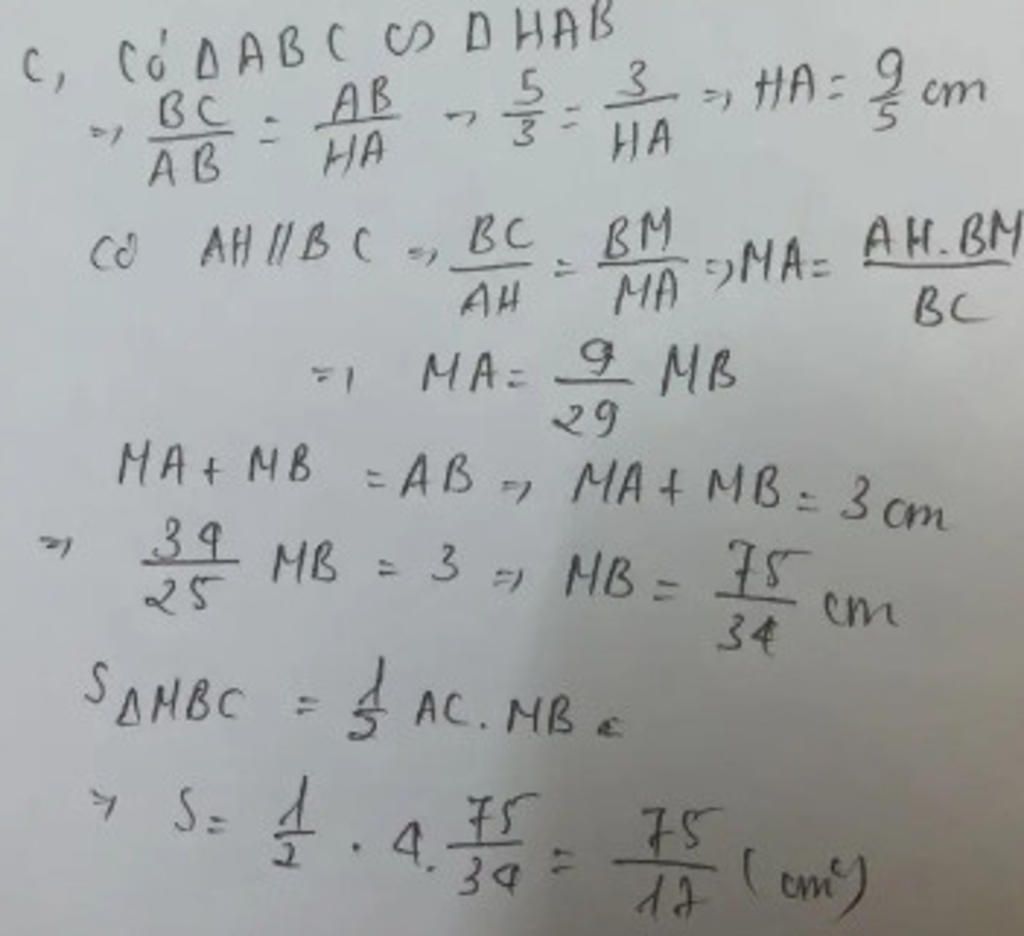 c, Có ΔABC ∽ ΔHAB
=> BC/AB = AB/HA => 5/3 = 3/HA => HA = 9/5 cm
Có AH//BC => BC/AH = BM/MA => MA = AH.BM/BC
=> MA = 9/29 MB
MA + MB = AB => MA + MB = 3 cm
=> 34/25 MB = 3 => MB = 75/34 cm
SΔMBC = 1/2 AC . MB
=> S = 1/2 . 4. 75/34 = 75/17 (cm²)